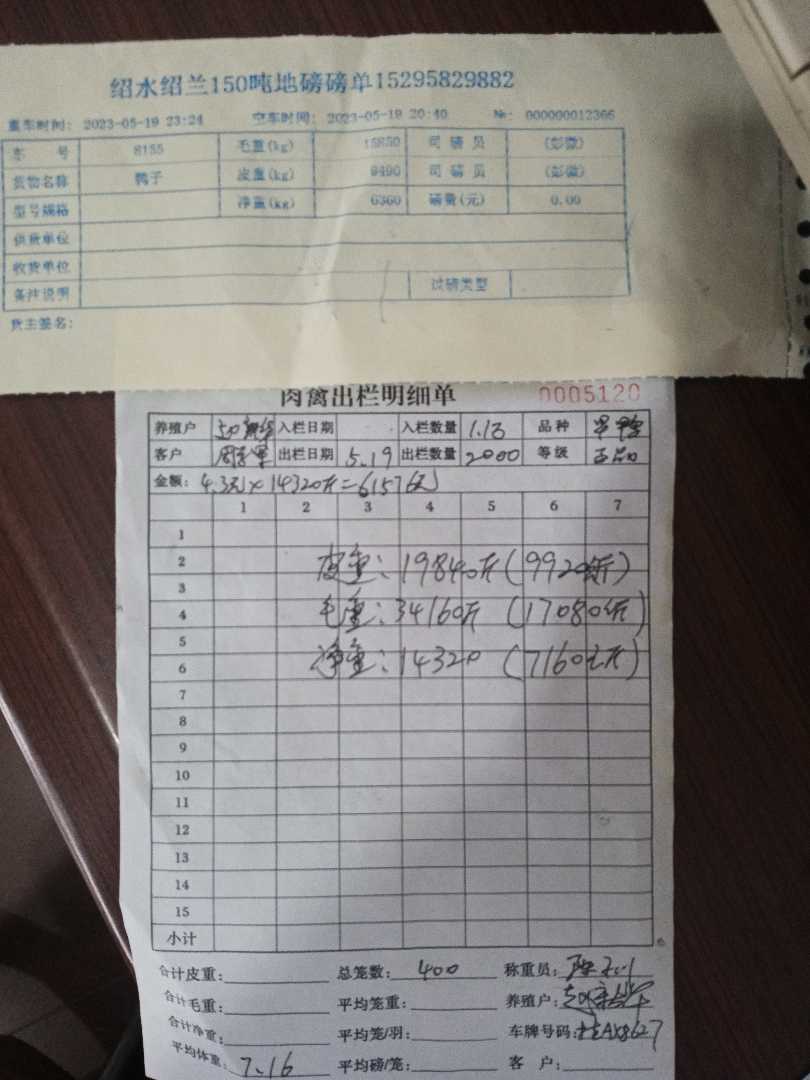 绍水绍兰150吨地磅磅单15295829882
重车时间: 2023-05-19 23:24 空车时间: 2023-05-19 20:40 №: 000000012366
车 号 8155 毛重(kg) 15850 司 磅 员 (彭微)
货物名称 鸭子 皮重(kg) 9490 司 磅 员 (彭微)
型号规格 净重(kg) 6360 磅费(元) 0.00
供货单位
收货单位
备注说明 过磅类型
货主签名:
肉禽出栏明细单 0005120
养殖户 入栏日期 入栏数量 1.13 品种
客户 出栏日期 5.19 出栏数量 2000 等级
金额: 4.3元×14320斤=61576元
1 2 3 4 5 6 7
1
2 皮重: 19840斤(9920公斤)
3
4 毛重: 34160斤(17080公斤)
5
6 净重: 14320 (7160公斤)
7
8
9
10
11
12
13
14
15
小计
合计皮重: 总笼数: 400 称重员:
合计毛重: 平均笼重: 养殖户:
合计净重: 平均笼/羽: 车牌号码: 桂AX8627
平均体重: 7.16 平均磅/笼: 客 户: